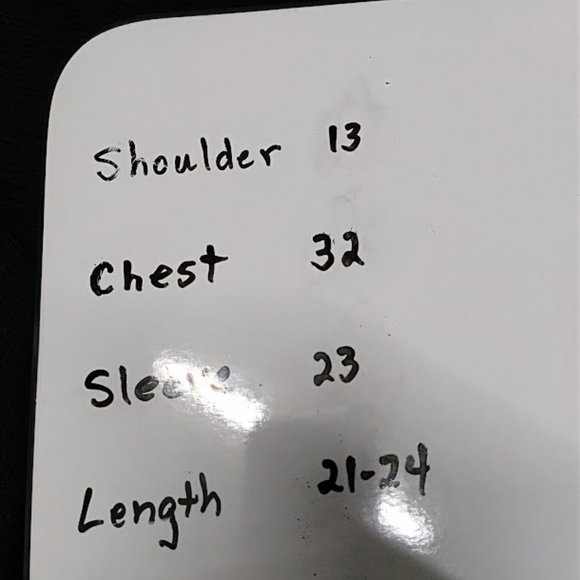 Shoulder 13
Chest 32
Sleeve 23
Length 21-24